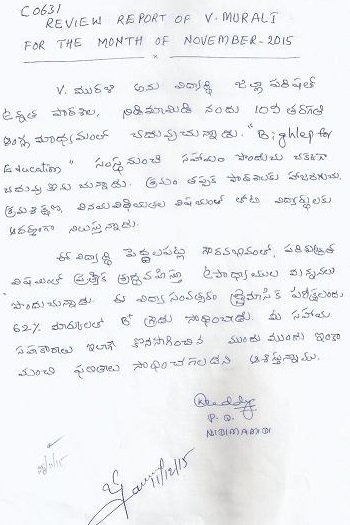 C0631
REVIEW REPORT OF V. MURALI
FOR THE MONTH OF NOVEMBER-2015
V. మురళి అను విద్యార్థి జిల్లా పరిషత్
ఉన్నత పాఠశాల, నిడిమామిడి నందు 10వ తరగతి
ఆంగ్ల మాధ్యమంలో చదువుచున్నాడు. "Bighelp for
Education" సంస్థ నుంచి సహాయం పొందుచు చక్కగా
చదువు కొను చున్నాడు. క్రమం తప్పక పాఠశాలకు హాజరగుచు,
క్రమశిక్షణ, వినయవిధేయతల విషయంలో తోటి విద్యార్థులకు
ఆదర్శంగా నిలుస్తున్నాడు.
ఈ విద్యార్థి పెద్దలపట్ల గౌరవభావంతో, పరిశుభ్రత
విషయంలో ప్రత్యేక శ్రద్ధవహిస్తూ ఉపాధ్యాయుల మన్ననలు
పొందుచున్నాడు. ఈ విద్యా సంవత్సరం త్రైమాసిక పరీక్షలందు
62% మార్కులతో B గ్రేడు సాధించాడు. మీ సహాయ
సహకారాలు ఇలాగే కొనసాగించిన ముందు ముందు ఇంకా
మంచి ఫలితాలు సాధించగలడని ఆశిస్తున్నాము.
P. D.
NIDIMAMIDI
11/12/15